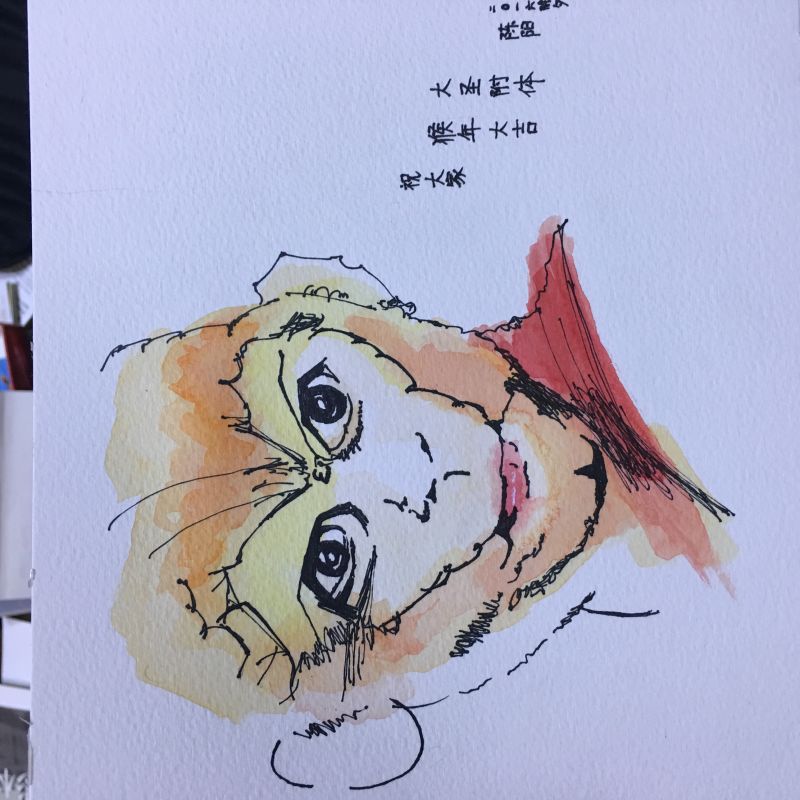 祝大家
猴年大吉
大圣附体
陈阳
二〇一六除夕